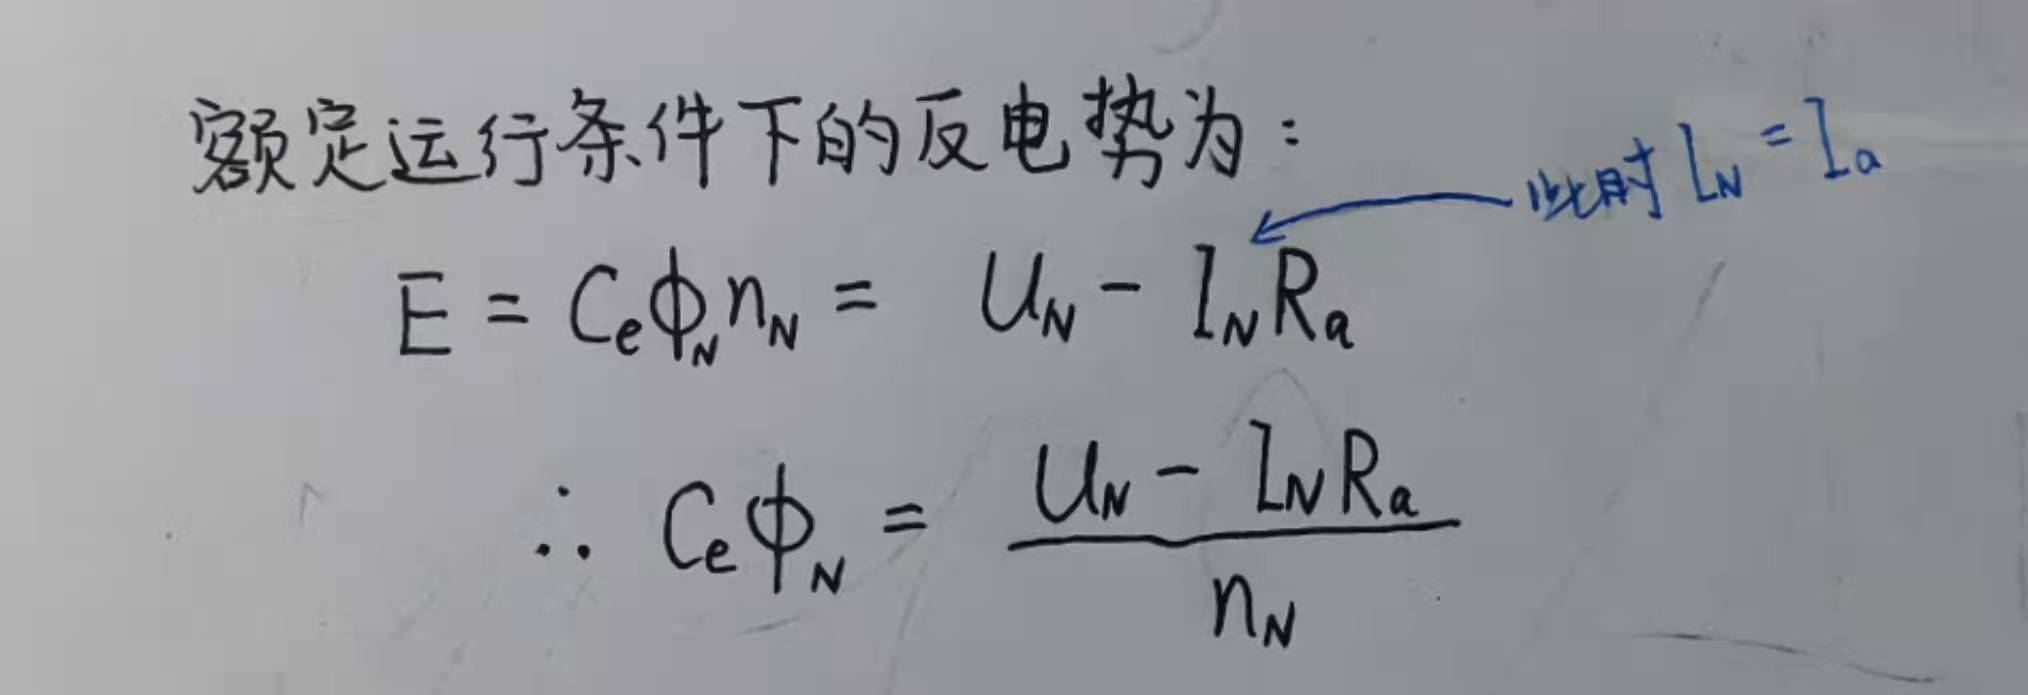 额定运行条件下的反电势为：
此时 I_N = I_a
E = C_eϕ_N n_N = U_N - I_N R_a
∴ C_eϕ_N = \frac{U_N - I_N R_a}{n_N}